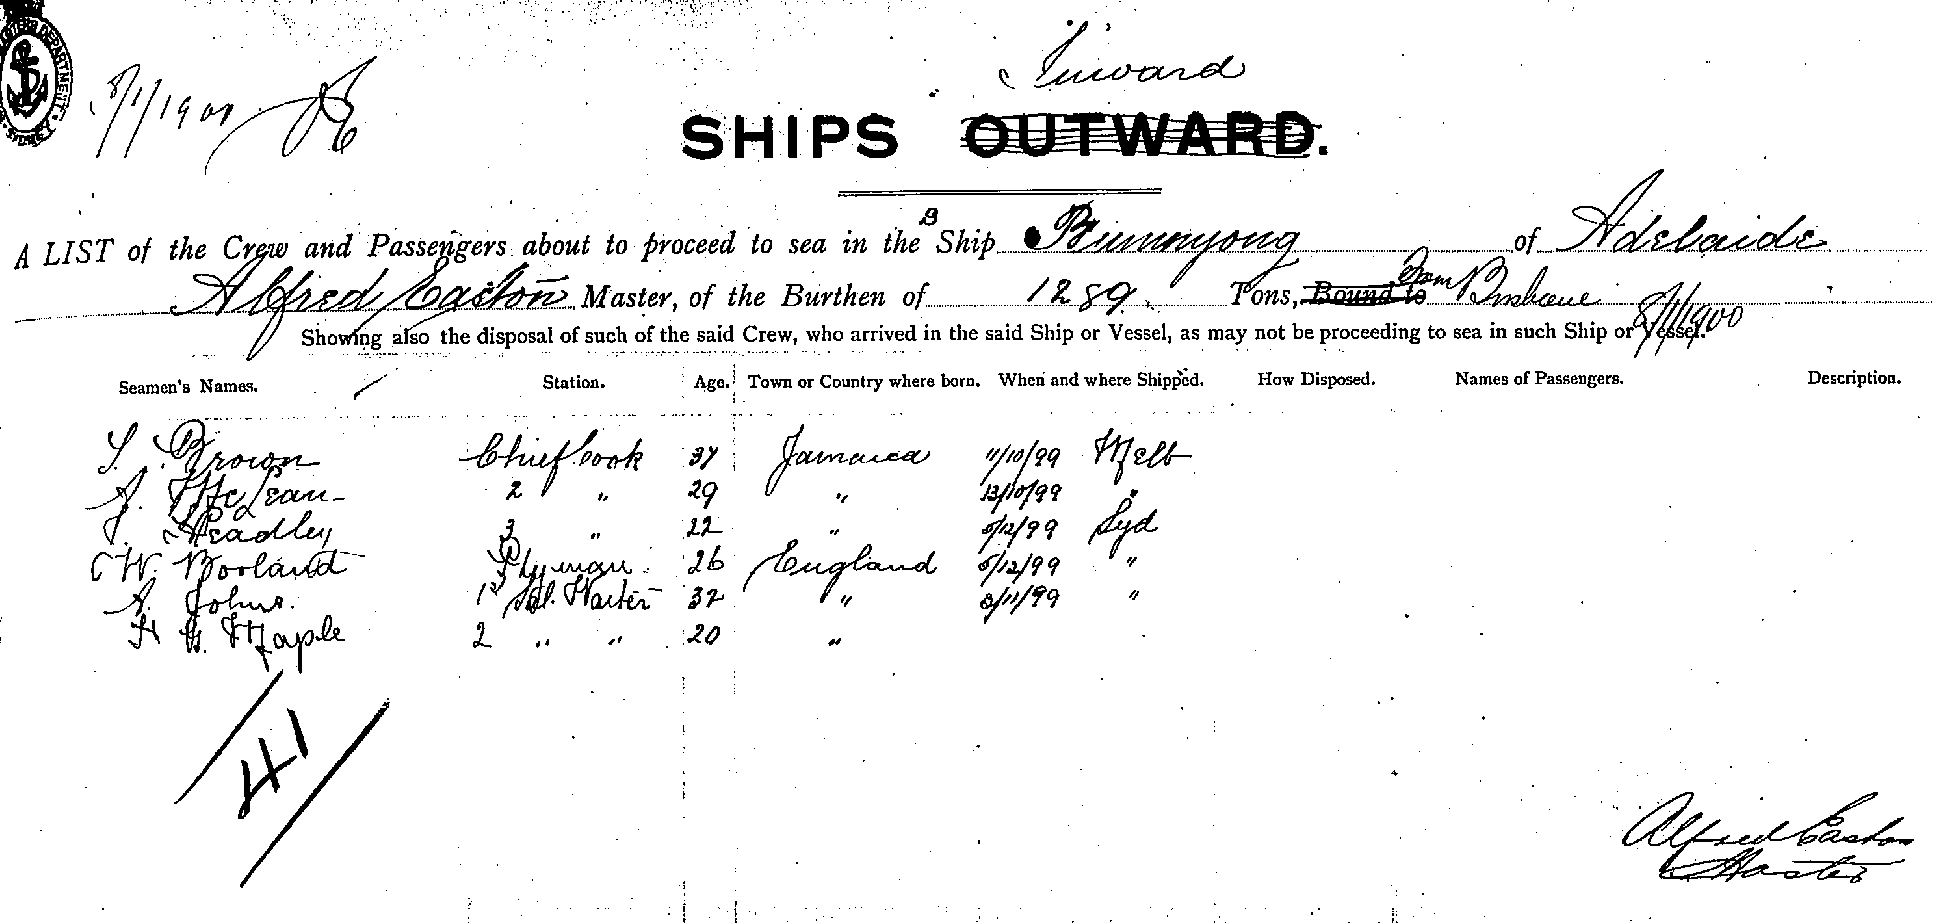 Inward
8/1/1900
SHIPS OUTWARD.
A LIST of the Crew and Passengers about to proceed to sea in the S Ship Buninyong of Adelaide
Alfred Easton Master, of the Burthen of 1289 Tons, Bound to from Brisbane 8/1/1900
Showing also the disposal of such of the said Crew, who arrived in the said Ship or Vessel, as may not be proceeding to sea in such Ship or Vessel.
Seamen's Names. Station. Age. Town or Country where born. When and where Shipped. How Disposed. Names of Passengers. Description.
S. Brown Chief Cook 37 Jamaica 11/10/99 Melb
J. McLean 2 " 29 " 13/10/99 "
J. Headley 3 " 22 " 5/12/99 Syd
W. Borland 26 England 5/12/99 "
A. Johns. 1st Sal. Waiter 32 " 8/11/99 "
H G. Maple 2 " " 20 "
41
Alfred Easton
Master